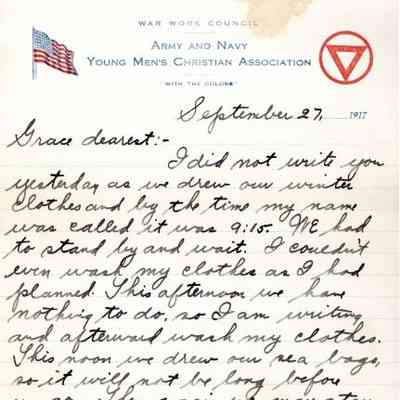 WAR WORK COUNCIL
ARMY AND NAVY
YOUNG MEN'S CHRISTIAN ASSOCIATION
"WITH THE COLORS"
September 27, 1917
Grace dearest:-
I did not write you
yesterday as we drew our winter
clothes and by the time my name
was called it was 9:15. WE had
to stand by and wait. I couldn't
even wash my clothes as I had
planned. This afternoon we have
nothing to do, so I am writing
and afterward wash my clothes.
This noon we drew our sea bags,
so it will not be long before